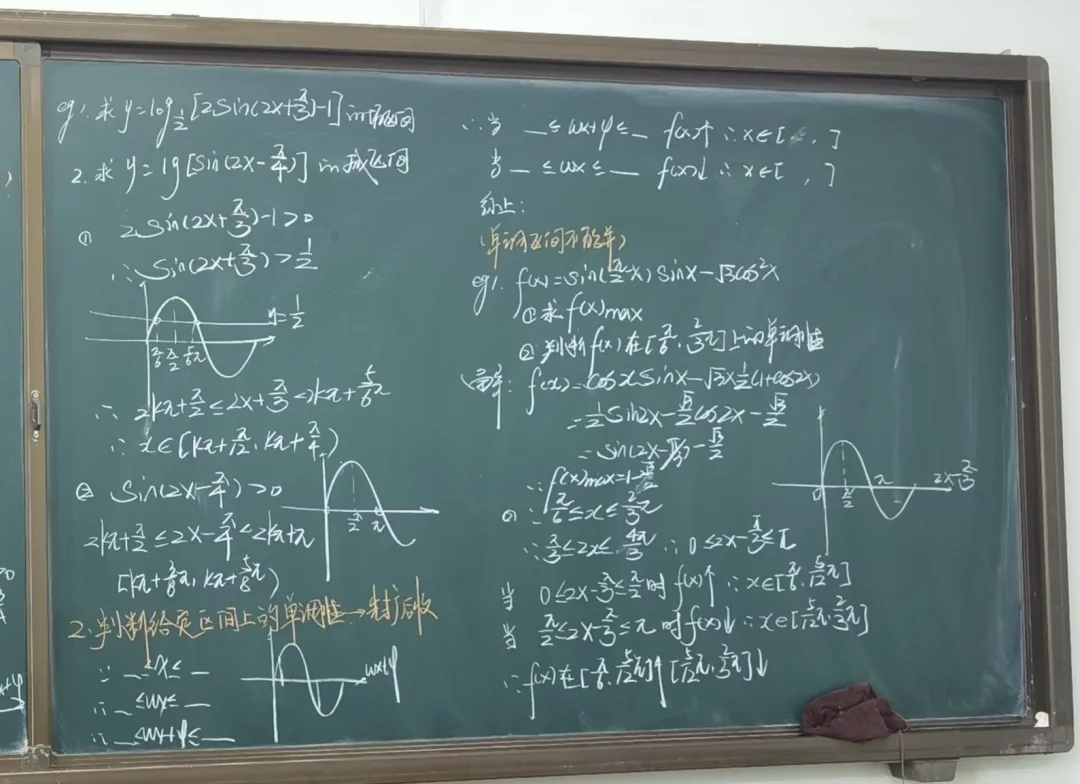 eg1. 求 y=log_{1/2}[2sin(2x+π/3)-1] 的增区间
2. 求 y=lg[sin(2x-π/4)] 的减区间
① 2sin(2x+π/3)-1>0
∴ sin(2x+π/3)>1/2
y=1/2
π/6 π/2 5/6π
∴ 2kπ+π/2≤2x+π/3<2kπ+5/6π
∴ x∈[kπ+π/12, kπ+π/4)
② sin(2x-π/4)>0
2kπ+π/2≤2x-π/4<2kπ+π
π/2 π
[kπ+3/8π, kπ+5/8π)
2. 判断给定区间上的单调性→先扩后收
∵ _≤x≤_
∴ _≤ωx≤_
∴ _≤ωx+φ≤_
ωx+φ
∴当 _≤ωx+φ≤_ f(x)↑ ∴x∈[ , ]
当 _≤ωx≤_ f(x)↓ ∴x∈[ , ]
综上:
(单调区间不能并)
eg1. f(x)=sin(π/2-x)sinx-√3cos²x
①求f(x)max
②判断f(x)在[π/6, 2/3π]上的单调性
解: f(x)=cosxsinx-√3×1/2(1+cos2x)
=1/2sin2x-√3/2cos2x-√3/2
=sin(2x-π/3)-√3/2
∴f(x)max=1-√3/2
② ∵π/6≤x≤2/3π
∴π/3≤2x≤4π/3 ∴0≤2x-π/3≤π
当 0≤2x-π/3≤π/2时f(x)↑ ∴x∈[π/6, 5/12π]
当 π/2≤2x-π/3≤π时f(x)↓ ∴x∈[5/12π, 2/3π]
∴f(x)在[π/6, 5/12π]↑ [5/12π, 2/3π]↓
0 π/2 π 2x-π/3